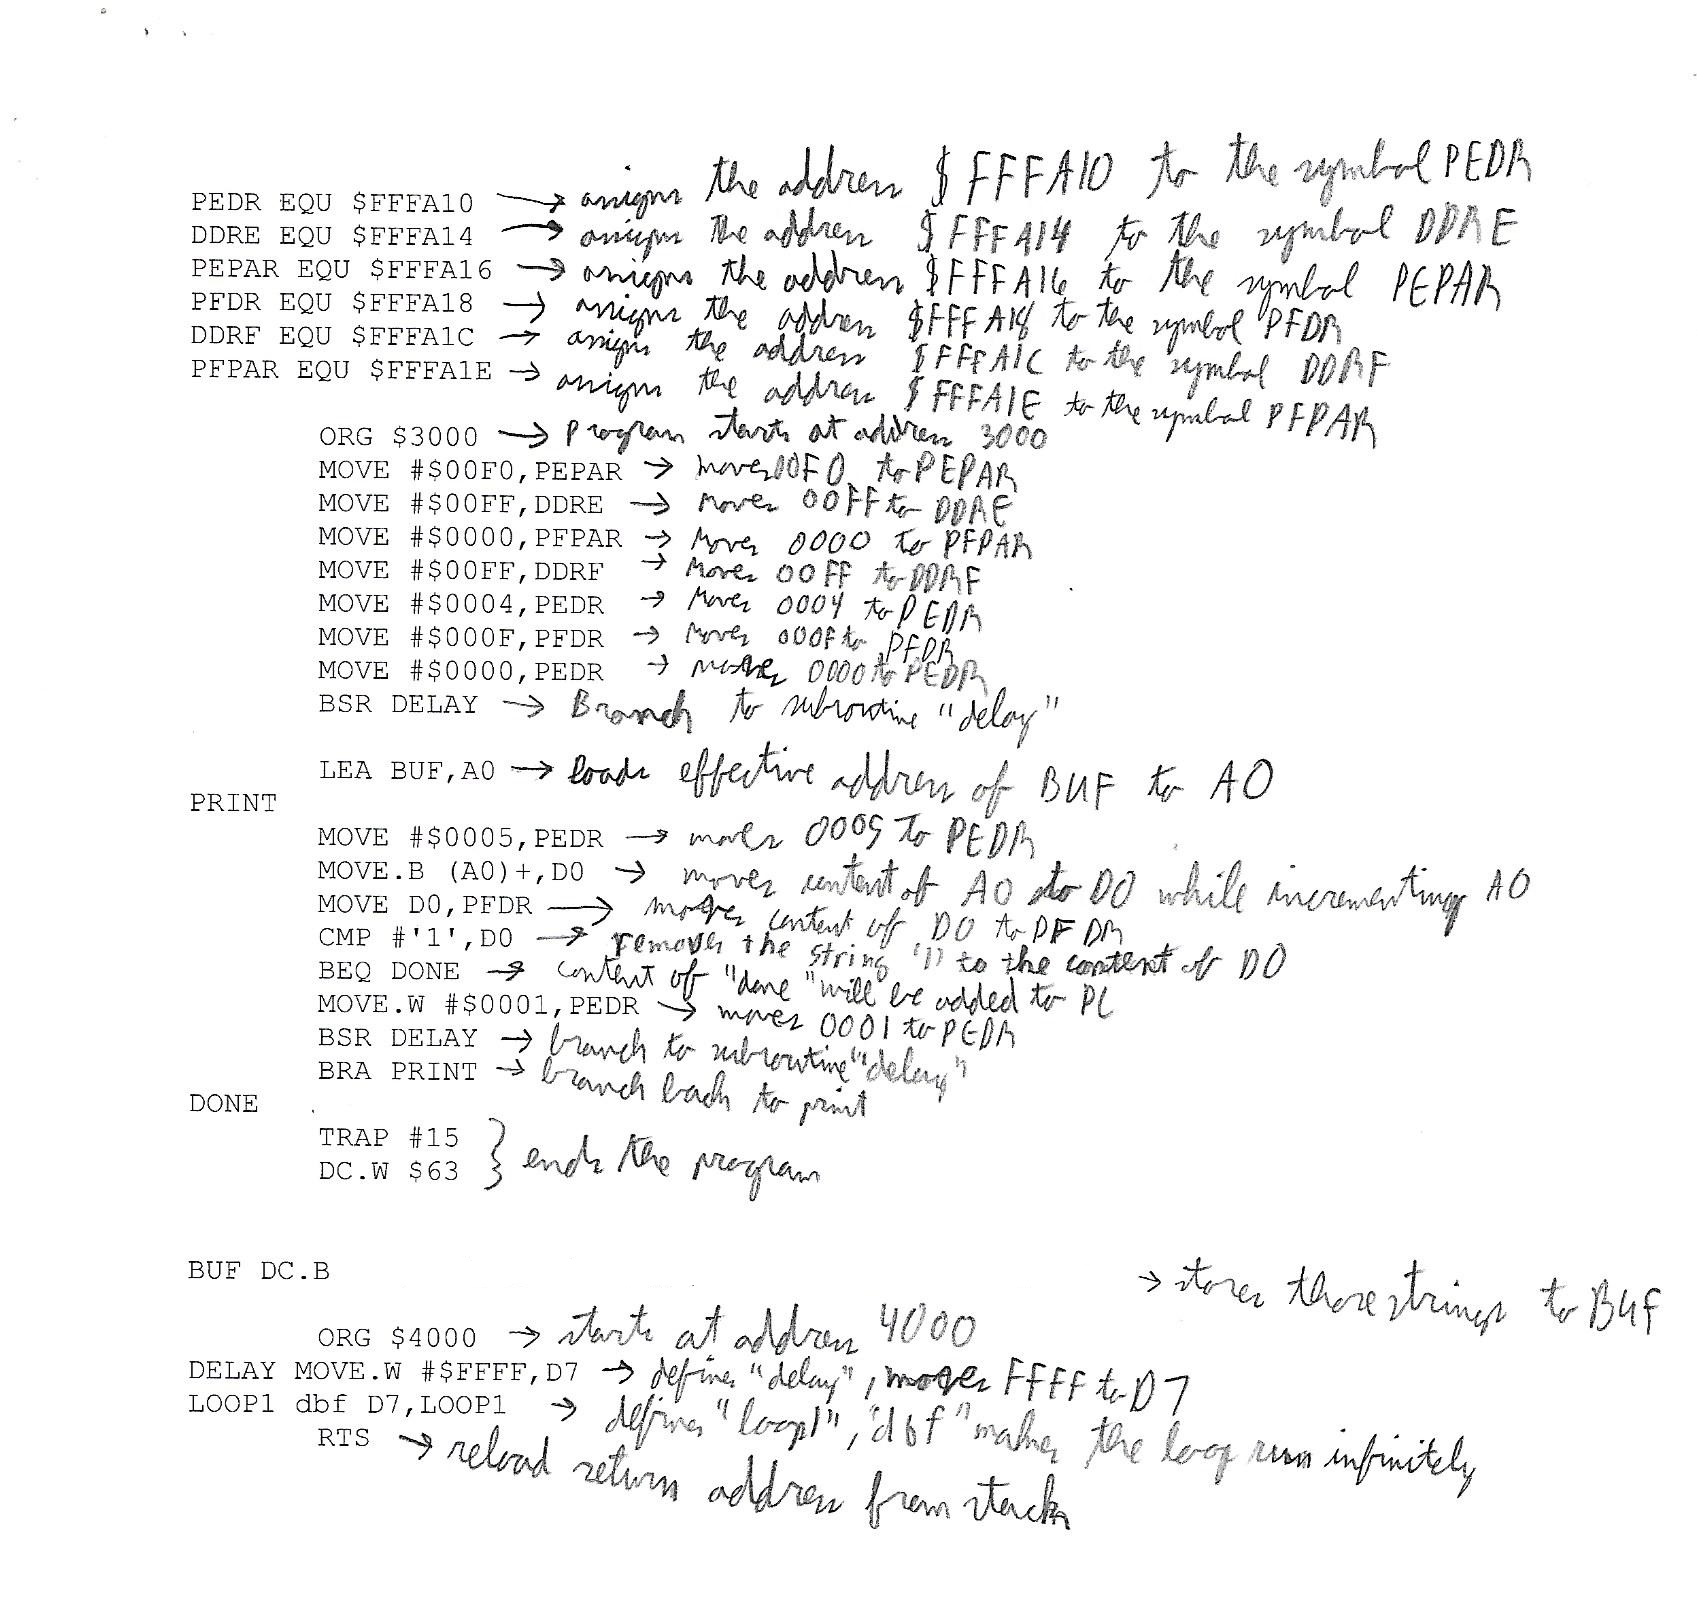 PEDR EQU $FFFA10 → assigns the address $FFFA10 to the symbol PEDR
DDRE EQU $FFFA14 → assigns the address $FFFA14 to the symbol DDRE
PEPAR EQU $FFFA16 → assigns the address $FFFA16 to the symbol PEPAR
PFDR EQU $FFFA18 → assigns the address $FFFA18 to the symbol PFDR
DDRF EQU $FFFA1C → assigns the address $FFFA1C to the symbol DDRF
PFPAR EQU $FFFA1E → assigns the address $FFFA1E to the symbol PFPAR
ORG $3000 → Program starts at address 3000
MOVE #$00F0,PEPAR → moves 00F0 to PEPAR
MOVE #$00FF,DDRE → moves 00FF to DDRE
MOVE #$0000,PFPAR → Moves 0000 to PFPAR
MOVE #$00FF,DDRF → Moves 00FF to DDRF
MOVE #$0004,PEDR → Moves 0004 to PEDR
MOVE #$000F,PFDR → Moves 000F to PFDR
MOVE #$0000,PEDR → moves 0000 to PEDR
BSR DELAY → Branch to subroutine "delay"
LEA BUF,A0 → loads effective address of BUF to A0
PRINT
MOVE #$0005,PEDR → moves 0005 to PEDR
MOVE.B (A0)+,D0 → moves content of A0 to D0 while incrementing A0
MOVE D0,PFDR → moves content of D0 to PFDR
CMP #'1',D0 → removes the string '1' to the content of D0
BEQ DONE → content of "done" will be added to PC
MOVE.W #$0001,PEDR → moves 0001 to PEDR
BSR DELAY → branch to subroutine "delay"
BRA PRINT → branch back to print
DONE
TRAP #15
DC.W $63 } ends the program
BUF DC.B → stores those strings to BUF
ORG $4000 → starts at address 4000
DELAY MOVE.W #$FFFF,D7 → defines "delay", moves FFFF to D7
LOOP1 dbf D7,LOOP1 → defines "loop1", "dbf" makes the loop run infinitely
RTS → reload return address from stack